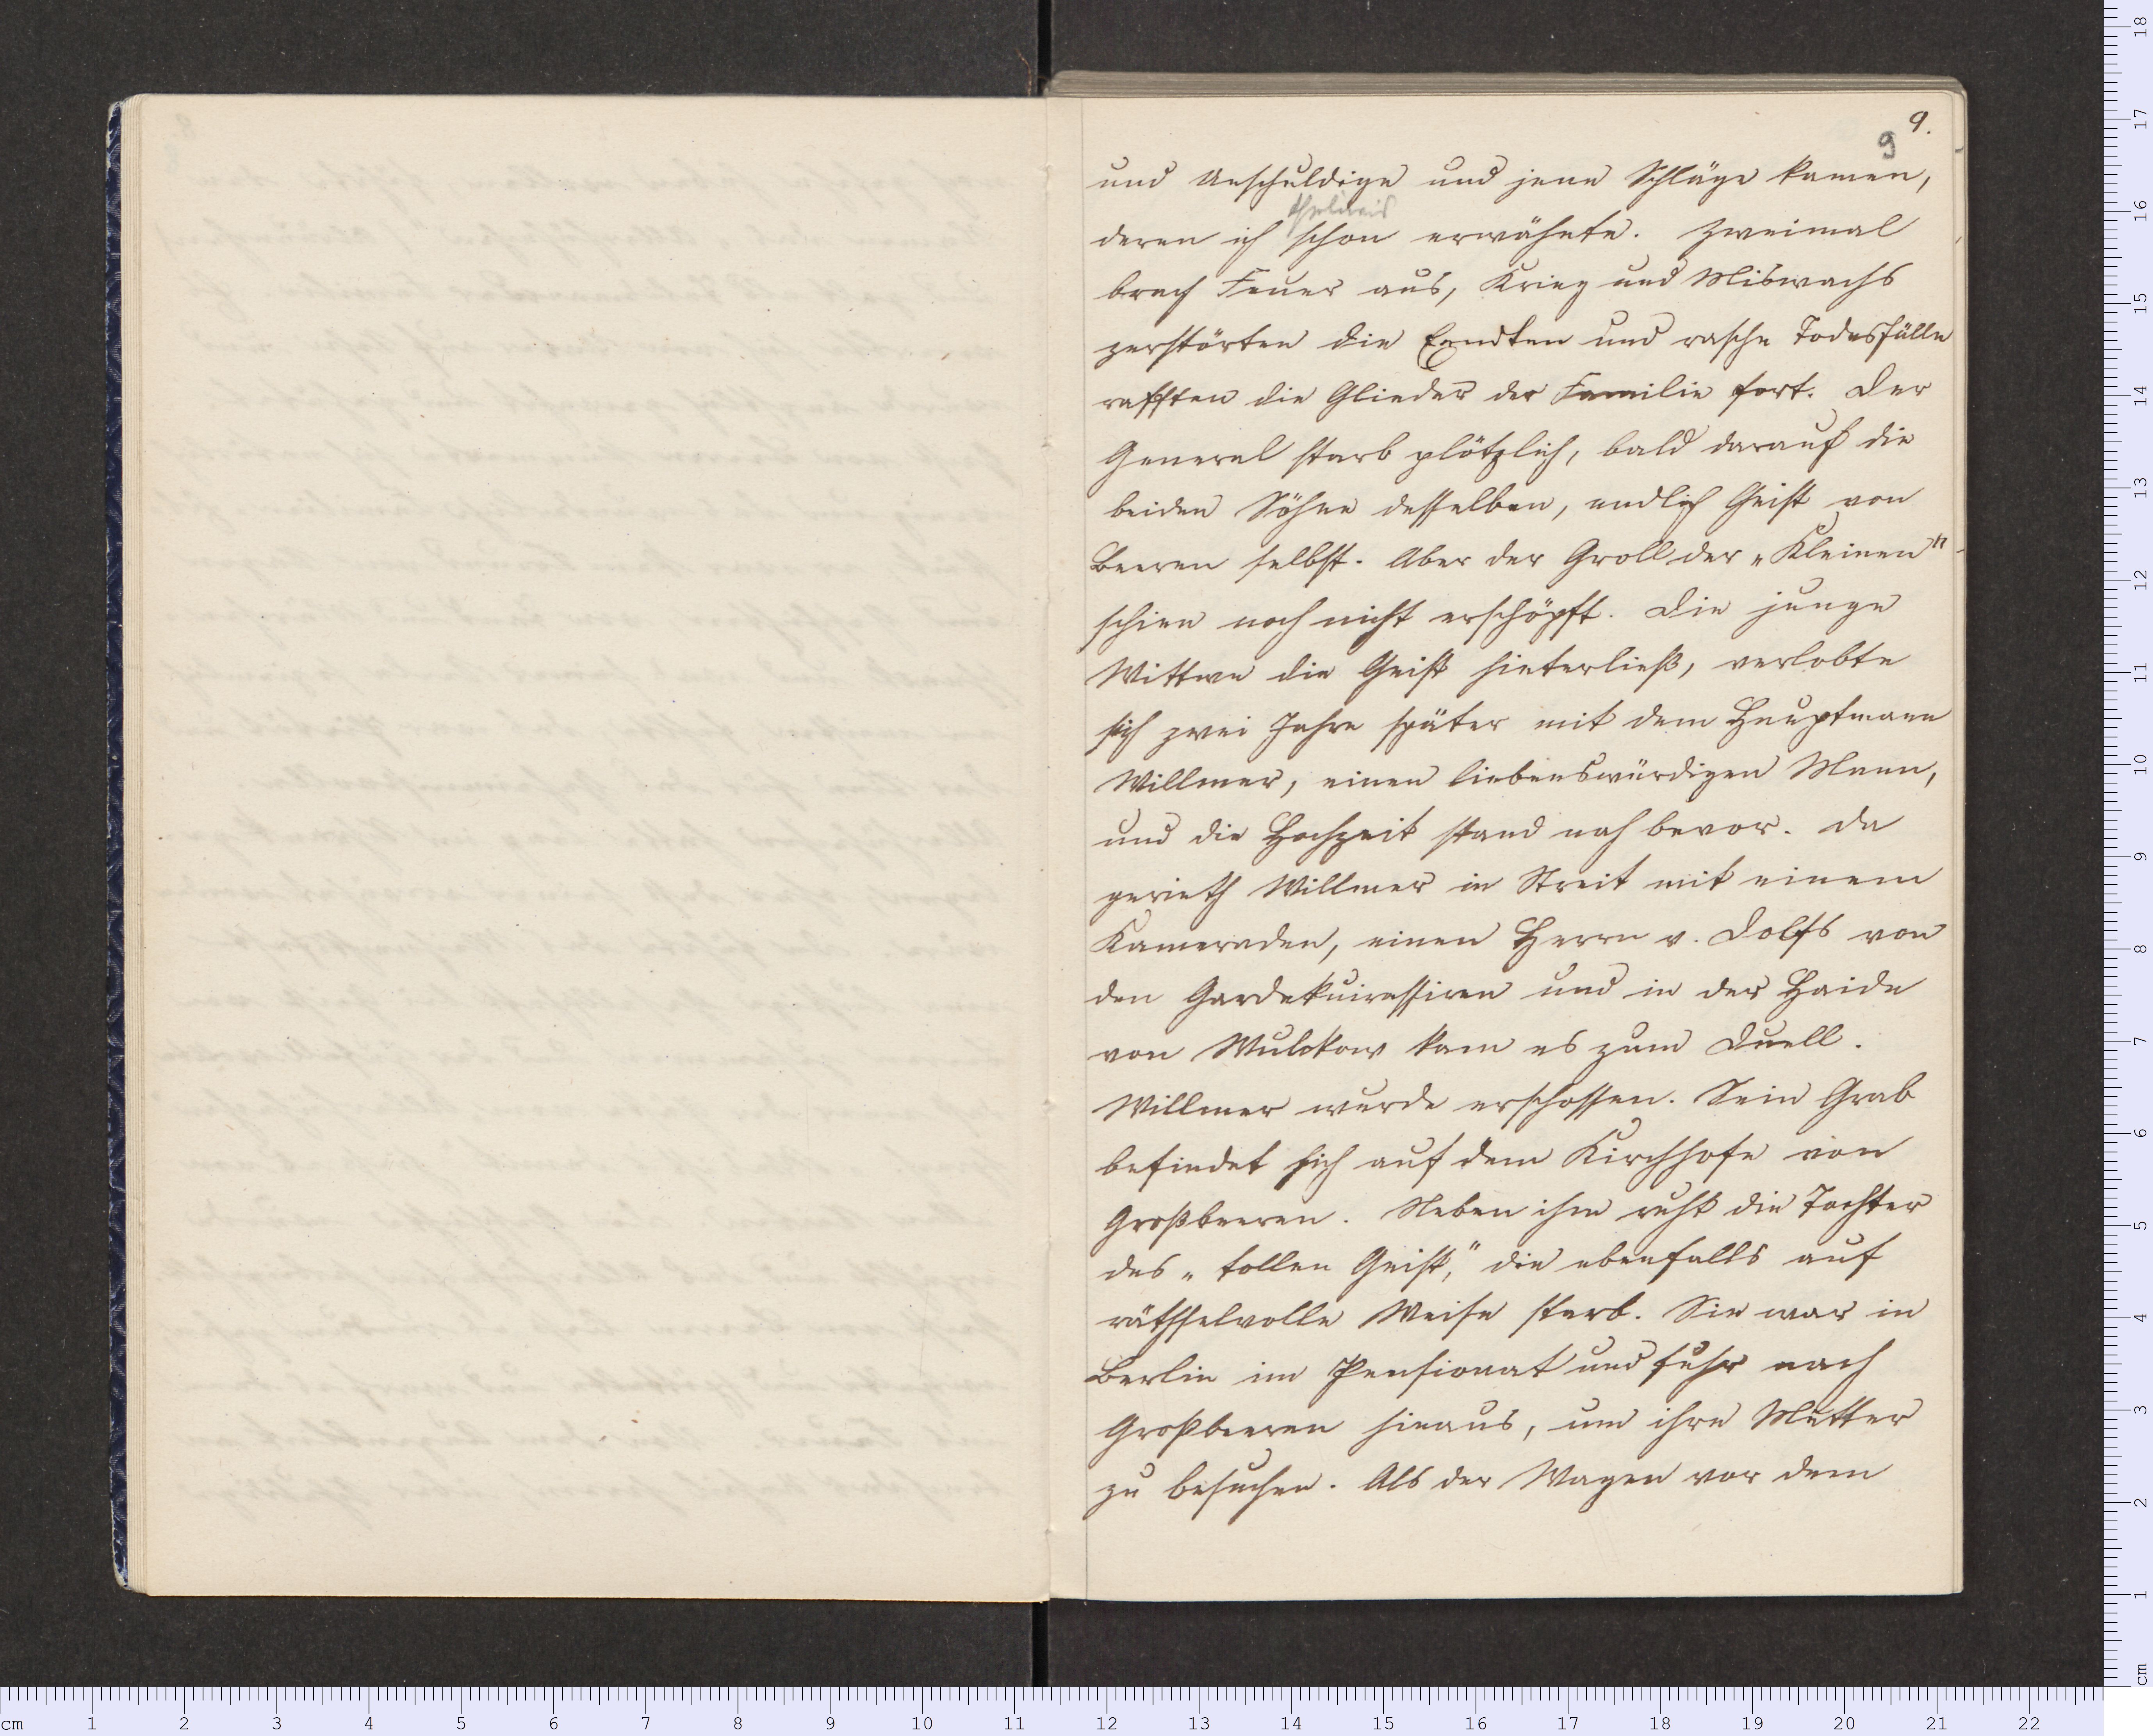 9.
9
und Unschuldige und jene Schläge kamen,
theilweis
deren ich schon erwähnte. Zweimal
brach Feuer aus, Krieg und Miswachs
zerstörten die Erndten und rasche Todesfälle
rafften die Glieder der Familie fort. Der
General starb plötzlich, bald darauf die
beiden Söhne desselben, endlich Geist von
Beeren selbst. Aber der Groll der „Kleinen"
schien noch nicht erschöpft. Die junge
Wittwe die Geist hinterließ, verlobte
sich zwei Jahre später mit dem Hauptmann
Willmer, einen liebenswürdigen Mann,
und die Hochzeit stand nah bevor. Da
gerieth Willmer in Streit mit einem
Kameraden, einen Herrn v. Dolffs von
den Gardekuirassiren und in der Haide
von Wulckow kam es zum Duell.
Willmer wurde erschossen. Sein Grab
befindet sich auf dem Kirchhofe von
Großbeeren. Neben ihm ruht die Tochter
des „tollen Geist," die ebenfalls auf
räthselvolle Weise starb. Sie war in
Berlin im Pensionat und fuhr nach
Großbeeren hinaus, um ihre Mutter
zu besuchen. Als der Wagen vor dem